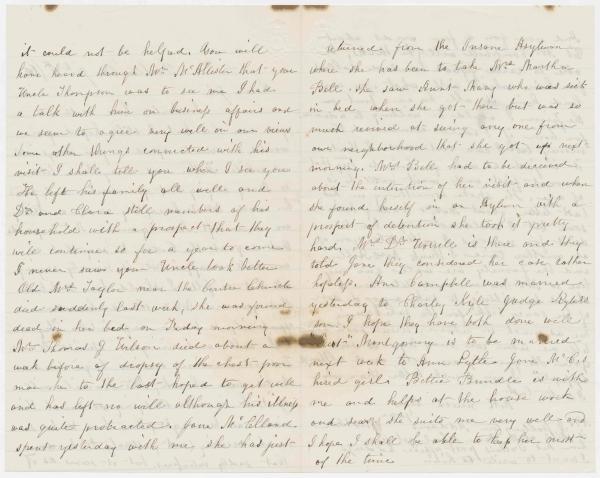 it could not be helped. You will
have heard through Mr McAllister that your
Uncle Thompson was to see me I had
a talk with him on business affairs and
we seem to agree very well in our views
Some other things connected with his
visit I shall tell you when I see you
He left his family all well and
Dr and Clara still members of his
household with a prospect that they
will continue so for a year to come
I never saw your Uncle look better
Old Mrs Taylor near the Centre Church
died suddenly last week, she was found
dead in her bed on Friday morning
Mr Thomas J Wilson died about a
week before of dropsy of the chest poor
man he to the last hoped to get well
and has left no will although his illness
was quite protracted. Jane McClland
spent yesterday with me she has just
returned from the Insane Asylum
where she has been to take Mrs Martha
Bell. She saw Aunt Mary who was sick
in bed when she got there but was so
much revived at seeing any one from
our neighborhood that she got up next
morning. Mrs Bell had to be deceived
about the intention of her visit and when
she found herself in an Asylum with a
prospect of detention she took it pretty
hard. Mrs Dr is there and they
told Jane they considered her case rather
hopeless. Ann Campbell was married
yesterday to Charley Judge
son I hope they have both done well
Montgomery is to be married
next week to Ann Lytle Jane Mc C's
hired girl. Bettie Brindle is with
me and helps at the house work
and sews she suits me very well and
I hope I shall be able to keep her most
of the time